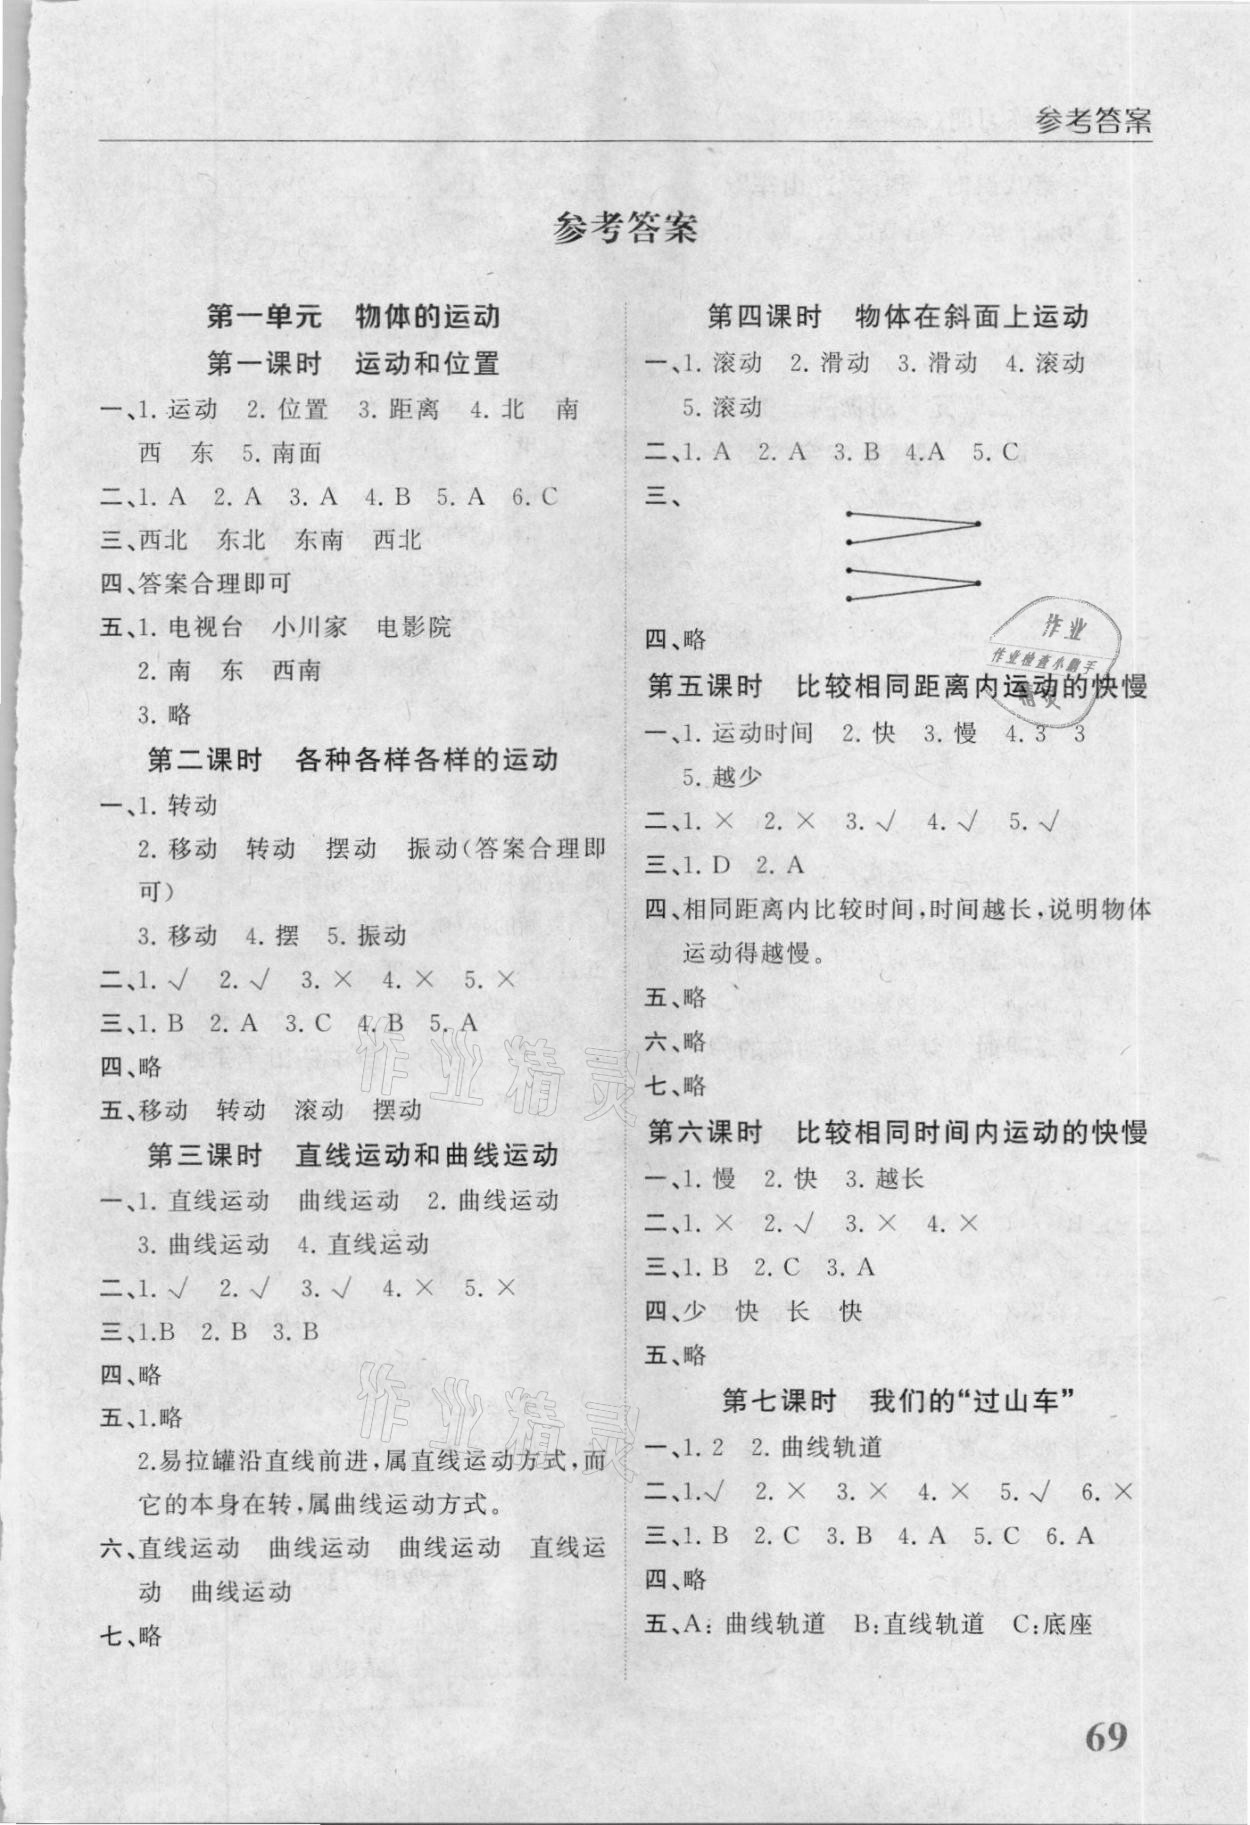 参考答案
参考答案
第一单元 物体的运动
第一课时 运动和位置
一、1. 运动 2. 位置 3. 距离 4. 北 南
西 东 5. 南面
二、1. A 2. A 3. A 4. B 5. A 6. C
三、西北 东北 东南 西北
四、答案合理即可
五、1. 电视台 小川家 电影院
2. 南 东 西南
3. 略
第二课时 各种各样各样的运动
一、1. 转动
2. 移动 转动 摆动 振动(答案合理即
可)
3. 移动 4. 摆 5. 振动
二、1. √ 2. √ 3. × 4. × 5. ×
三、1. B 2. A 3. C 4. B 5. A
四、略
五、移动 转动 滚动 摆动
第三课时 直线运动和曲线运动
一、1. 直线运动 曲线运动 2. 曲线运动
3. 曲线运动 4. 直线运动
二、1. √ 2. √ 3. √ 4. × 5. ×
三、1.B 2. B 3. B
四、略
五、1.略
2.易拉罐沿直线前进,属直线运动方式,而
它的本身在转,属曲线运动方式。
六、直线运动 曲线运动 曲线运动 直线运
动 曲线运动
七、略
第四课时 物体在斜面上运动
一、1. 滚动 2. 滑动 3. 滑动 4. 滚动
5. 滚动
二、1. A 2. A 3. B 4.A 5. C
三、
四、略
第五课时 比较相同距离内运动的快慢
一、1. 运动时间 2. 快 3. 慢 4. 3 3
5. 越少
二、1. × 2. × 3. √ 4. √ 5. √
三、1. D 2. A
四、相同距离内比较时间,时间越长,说明物体
运动得越慢。
五、略
六、略
七、略
第六课时 比较相同时间内运动的快慢
一、1. 慢 2. 快 3. 越长
二、1. × 2. √ 3. × 4. ×
三、1. B 2. C 3. A
四、少 快 长 快
五、略
第七课时 我们的“过山车”
一、1. 2 2. 曲线轨道
二、1.√ 2. × 3. × 4. × 5. √ 6. ×
三、1. B 2. C 3. B 4. A 5. C 6. A
四、略
五、A: 曲线轨道 B:直线轨道 C:底座
69
作业
作业检查小帮手
精灵
作业精灵
作业精灵